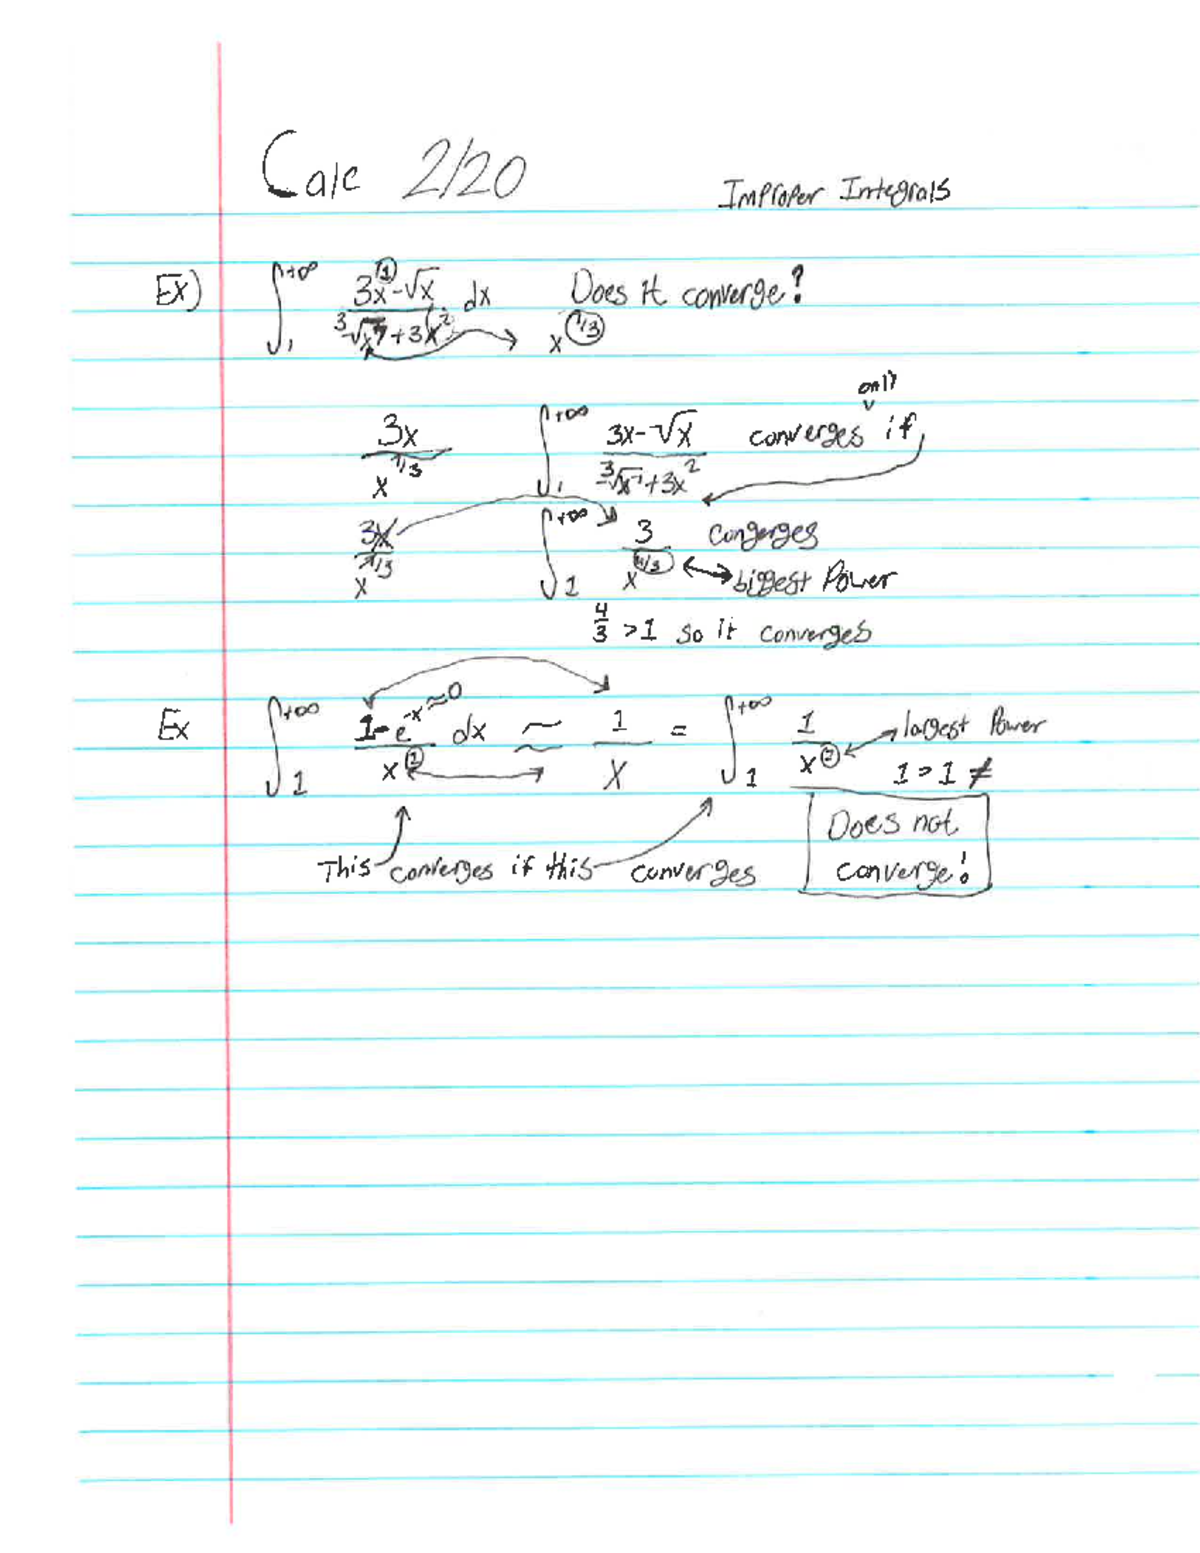 Calc 2/20
Improper Integrals
Ex) ∫₁^+∞ (3x^① - √x) / (³√x⁷ + 3x²) dx Does it converge?
x^(7/3)
3x / x^(7/3) ∫₁^+∞ (3x - √x) / (³√x⁷ + 3x²) converges only if
3x / x^(7/3) ∫₁^+∞ 3 / x^(4/3) congerges
biggest Power
4/3 > 1 so it converges
Ex ∫₁^+∞ (1 - e^-x ≈ 0) / x^① dx ≈ 1 / x = ∫₁^+∞ 1 / x^① largest Power
1 > 1 ≠
This converges if this converges
Does not
converge!